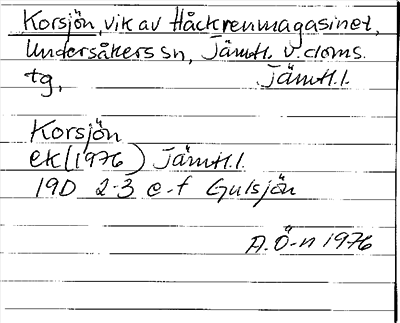 Korsjön, vik av Håckrenmagasinet,
Undersåkers sn, Jämtl. v. doms.
tg, Jämtl.l.
Korsjön
ek (1976) Jämtl.l.
19D 2-3 e-f Gulsjön
A. Ö-n 1976